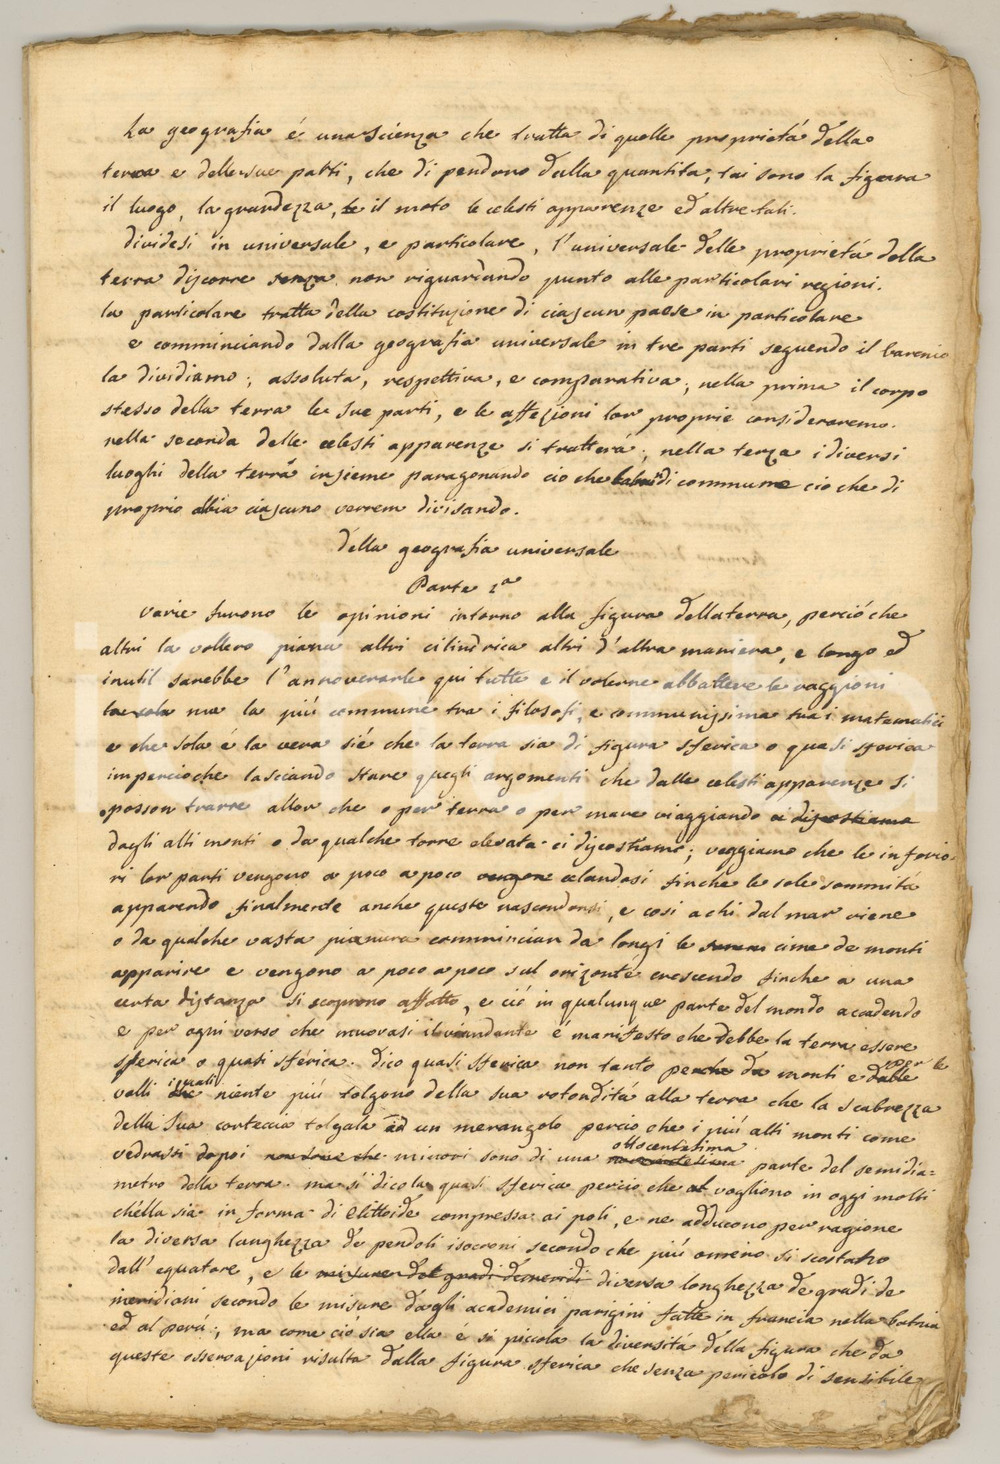 La geografia é una scienza che tratta di quelle proprietá della
terra e delle sue parti, che di pendono dalla quantita, tai sono la figura
il luogo, la grandezza, il moto le celesti apparenze ed altre tali.
dividesi in universale, e particolare, l'universale delle proprietá della
terra discorre senza non riguardando punto alle particolari regioni.
la particolare tratta della costituzione di ciascun paese in particolare
e comminciando dalla geografia universale in tre parti seguendo il Varenio
la dividiamo; assoluta, respettiva, e comparativa; nella prima il corpo
stesso della terra le sue parti, e le affezioni lor proprie consideraremo.
nella seconda delle celesti apparenze si tratterá; nella terza i diversi
luoghi della terra insieme paragonando cio che di commune cio che di
proprio abbia ciascuno verrem divisando.
della geografia universale
Parte 1a
varie furono le opinioni intorno alla figura della terra, perció che
altri la vollero piana altri cilindrica altri d'altra maniera, e longo ed
inutil sarebbe l'annoverarle qui tutte e il volerne abbattere le raggioni
la sola ma la piú commune tra i filosofi, e communissima tra i matematici
e che sola é la vera sié che la terra sia di figura sferica o quasi sferica
impercioche lasciando stare quegli argomenti che dalle celesti apparenze si
posson trarre allor che o per terra o per mare viaggiando ci discostiamo
dagli alti monti o da qualche torre elevata ci discostiamo; veggiamo che le inferio-
ri lor parti vengono a poco a poco vengono celandosi finche le sole sommitá
apparendo finalmente anche queste nascondonsi, e cosi a chi dal mar viene
o da qualche vasta pianura commincian da longi le cime de monti
apparire e vengono a poco a poco sul orizonte crescendo finche a una
certa distanza si scoprono affatto, e ció in qualunque parte del mondo accadendo
e per ogni verso che muovasi il viandante é manifesto che debbe la terra essere
sferica o quasi sferica. dico quasi sferica non tanto perche da monti e dalle per le
valli che quali niente piú tolgono della sua rotonditá alla terra che la scabrezza
della sua corteccia tolgala ad un merangolo percio che i piú alti monti come
vedrassi dopoi non sono che minori sono di una ottocentesima parte del semidia=
metro della terra. ma si dicola quasi sferica percio che al vogliono in oggi molti
ch'ella sia in forma di elittoide compressa ai poli, e ne adducono per ragione
la diversa lunghezza de pendoli isocroni secondo che piú o meno si scostano
dall'equatore, e le misure del gradi de meridi diversa longhezza de gradi de
meridiani secondo le misure dagli academici parigini fatte in francia nella
ed al perú; ma come ció sia ella é si piccola la diversitá della figura che da
queste osservazioni risulta dalla figura sferica che senza pericolo di sensibile